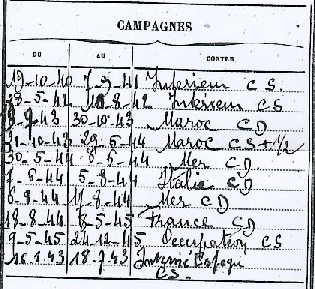 CAMPAGNES
DU AU CONTRE
19-10-40 7-9-41 Intérieur C S.
28-5-42 10-8-42 Intérieur C S
9-9-43 30-10-43 Maroc C D
31-10-43 29-5-44 Maroc C S + 1/2
30-5-44 6-5-44 Mer C D
7-6-44 5-8-44 Italie C D
6-8-44 17-8-44 Mer C D
18-8-44 8-5-45 France C D
9-5-45 24-12-45 Occupation C S
18-1-43 18-7-43 Interné Espagne
C S.